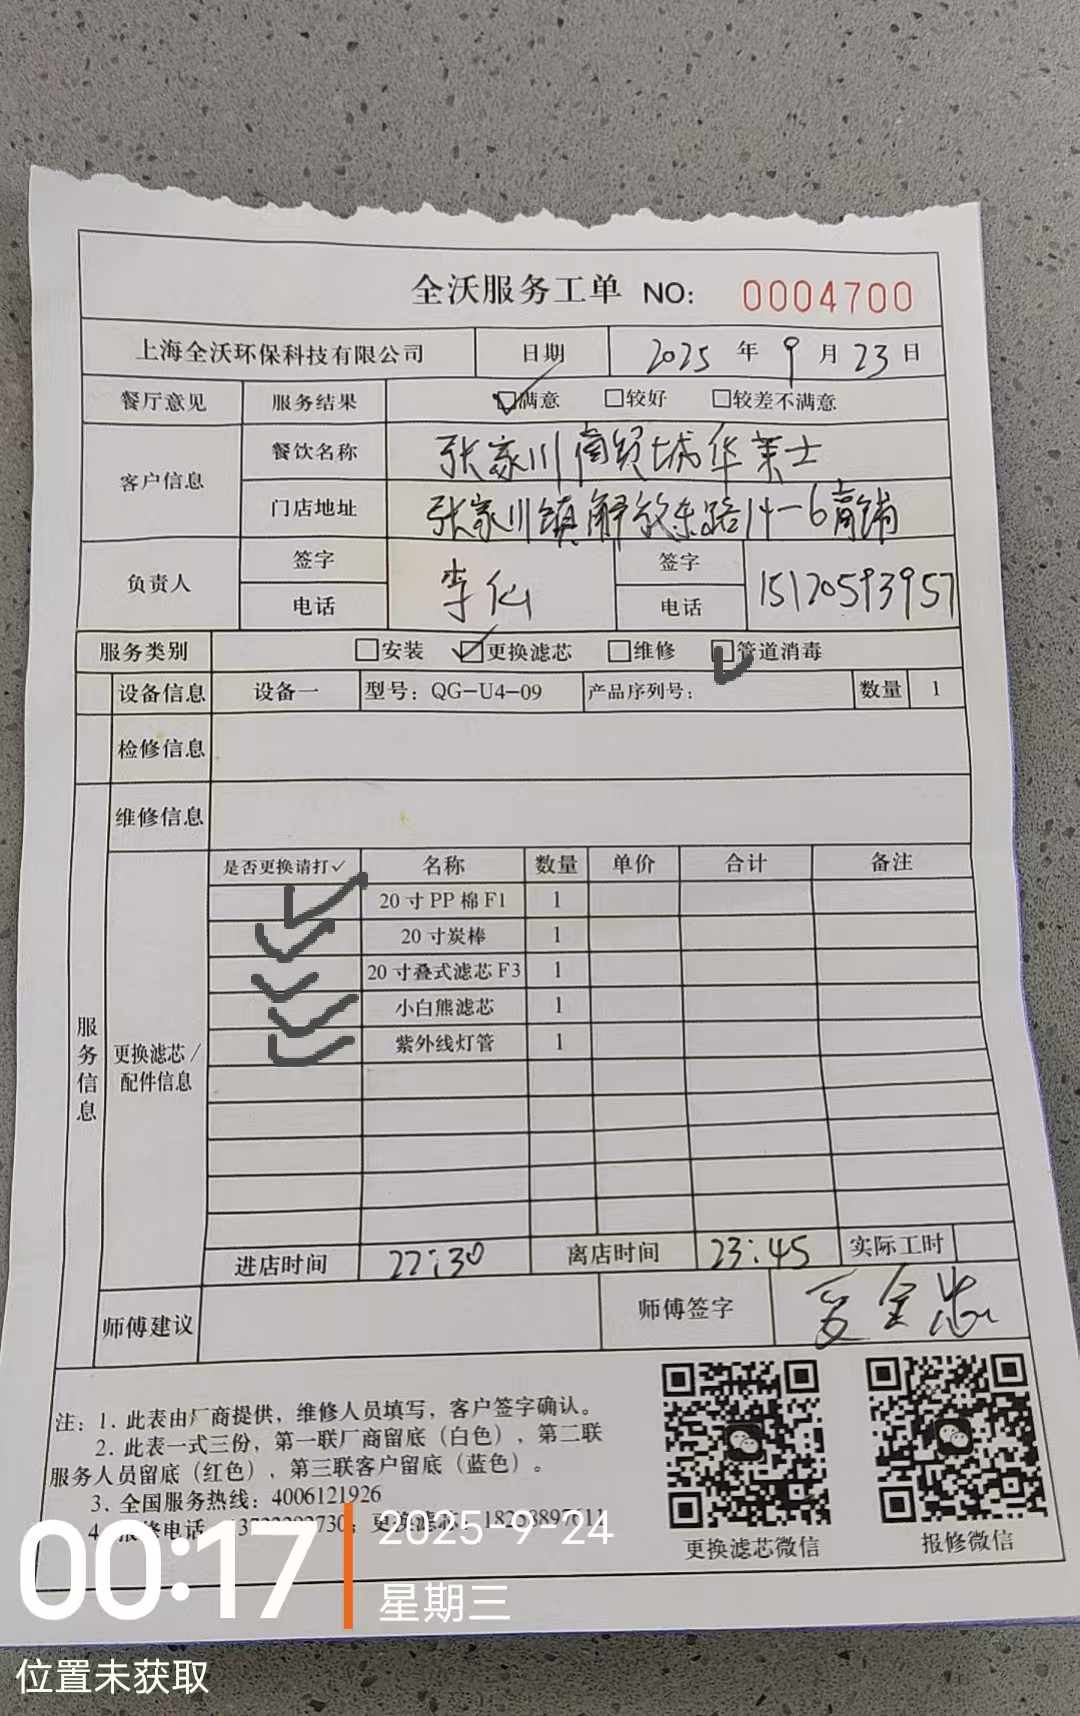 全沃服务工单 NO: 0004700
上海全沃环保科技有限公司 日期 2025 年 9 月 23 日
餐厅意见 服务结果 ☑满意 □较好 □较差不满意
客户信息 餐饮名称 张家川商贸城华莱士
门店地址 张家川镇解放东路14-6商铺
负责人 签字 李仙 签字
电话 电话 15120593957
服务类别 □安装 ☑更换滤芯 □维修 ☑管道消毒
设备信息 设备一 型号: QG-U4-09 产品序列号: 数量 1
检修信息
维修信息
服务信息
更换滤芯/配件信息
是否更换请打✓ 名称 数量 单价 合计 备注
✓ 20寸PP棉F1 1
✓ 20寸炭棒 1
✓ 20寸叠式滤芯F3 1
✓ 小白熊滤芯 1
✓ 紫外线灯管 1
进店时间 22:30 离店时间 23:45 实际工时
师傅建议 师傅签字 夏全忠
注: 1. 此表由厂商提供, 维修人员填写, 客户签字确认。
2. 此表一式三份, 第一联厂商留底(白色), 第二联
服务人员留底(红色), 第三联客户留底(蓝色)。
3. 全国服务热线: 4006121926
4. 报修电话 更换滤芯:
更换滤芯微信 报修微信
00:17 2025-9-24
星期三
位置未获取